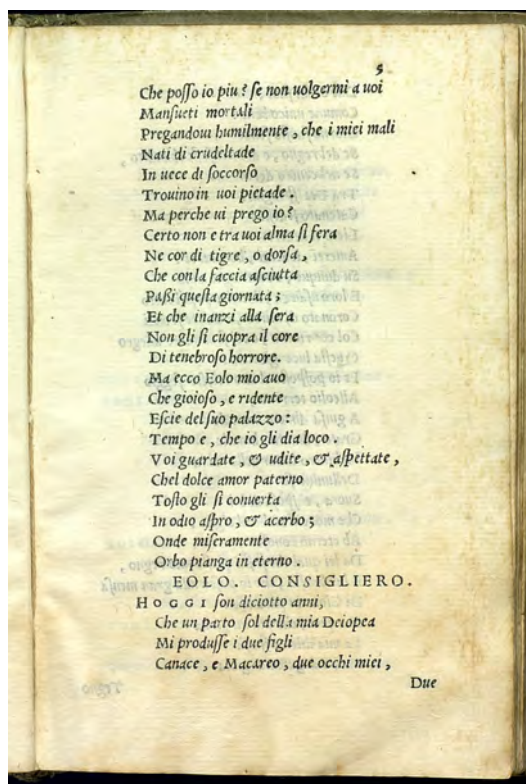 5
Che poſſo io piu ? ſe non uolgermi a uoi
Manſueti mortali
Pregandoui humilmente , che i miei mali
Nati di crudeltade
In uece di ſoccorſo
Trouino in uoi pietade .
Ma perche ui prego io ?
Certo non e tra uoi alma ſi fera
Ne cor di tigre , o dorſa ,
Che con la faccia aſciutta
Paßi queſta giornata ;
Et che inanzi alla ſera
Non gli ſi cuopra il core
Di tenebroſo horrore.
Ma ecco Eolo mio auo
Che gioioſo , e ridente
Eſcie del ſuo palazzo :
Tempo e , che io gli dia loco .
Voi guardate , & udite , & aſpettate ,
Chel dolce amor paterno
Toſto gli ſi conuerta
In odio aſpro , & acerbo ;
Onde miſeramente
Orbo pianga in eterno .
EOLO. CONSIGLIERO.
HOGGI ſon diciotto anni,
Che un parto ſol della mia Deiopea
Mi produſſe i due figli
Canace , e Macareo , due occhi miei ,
Due